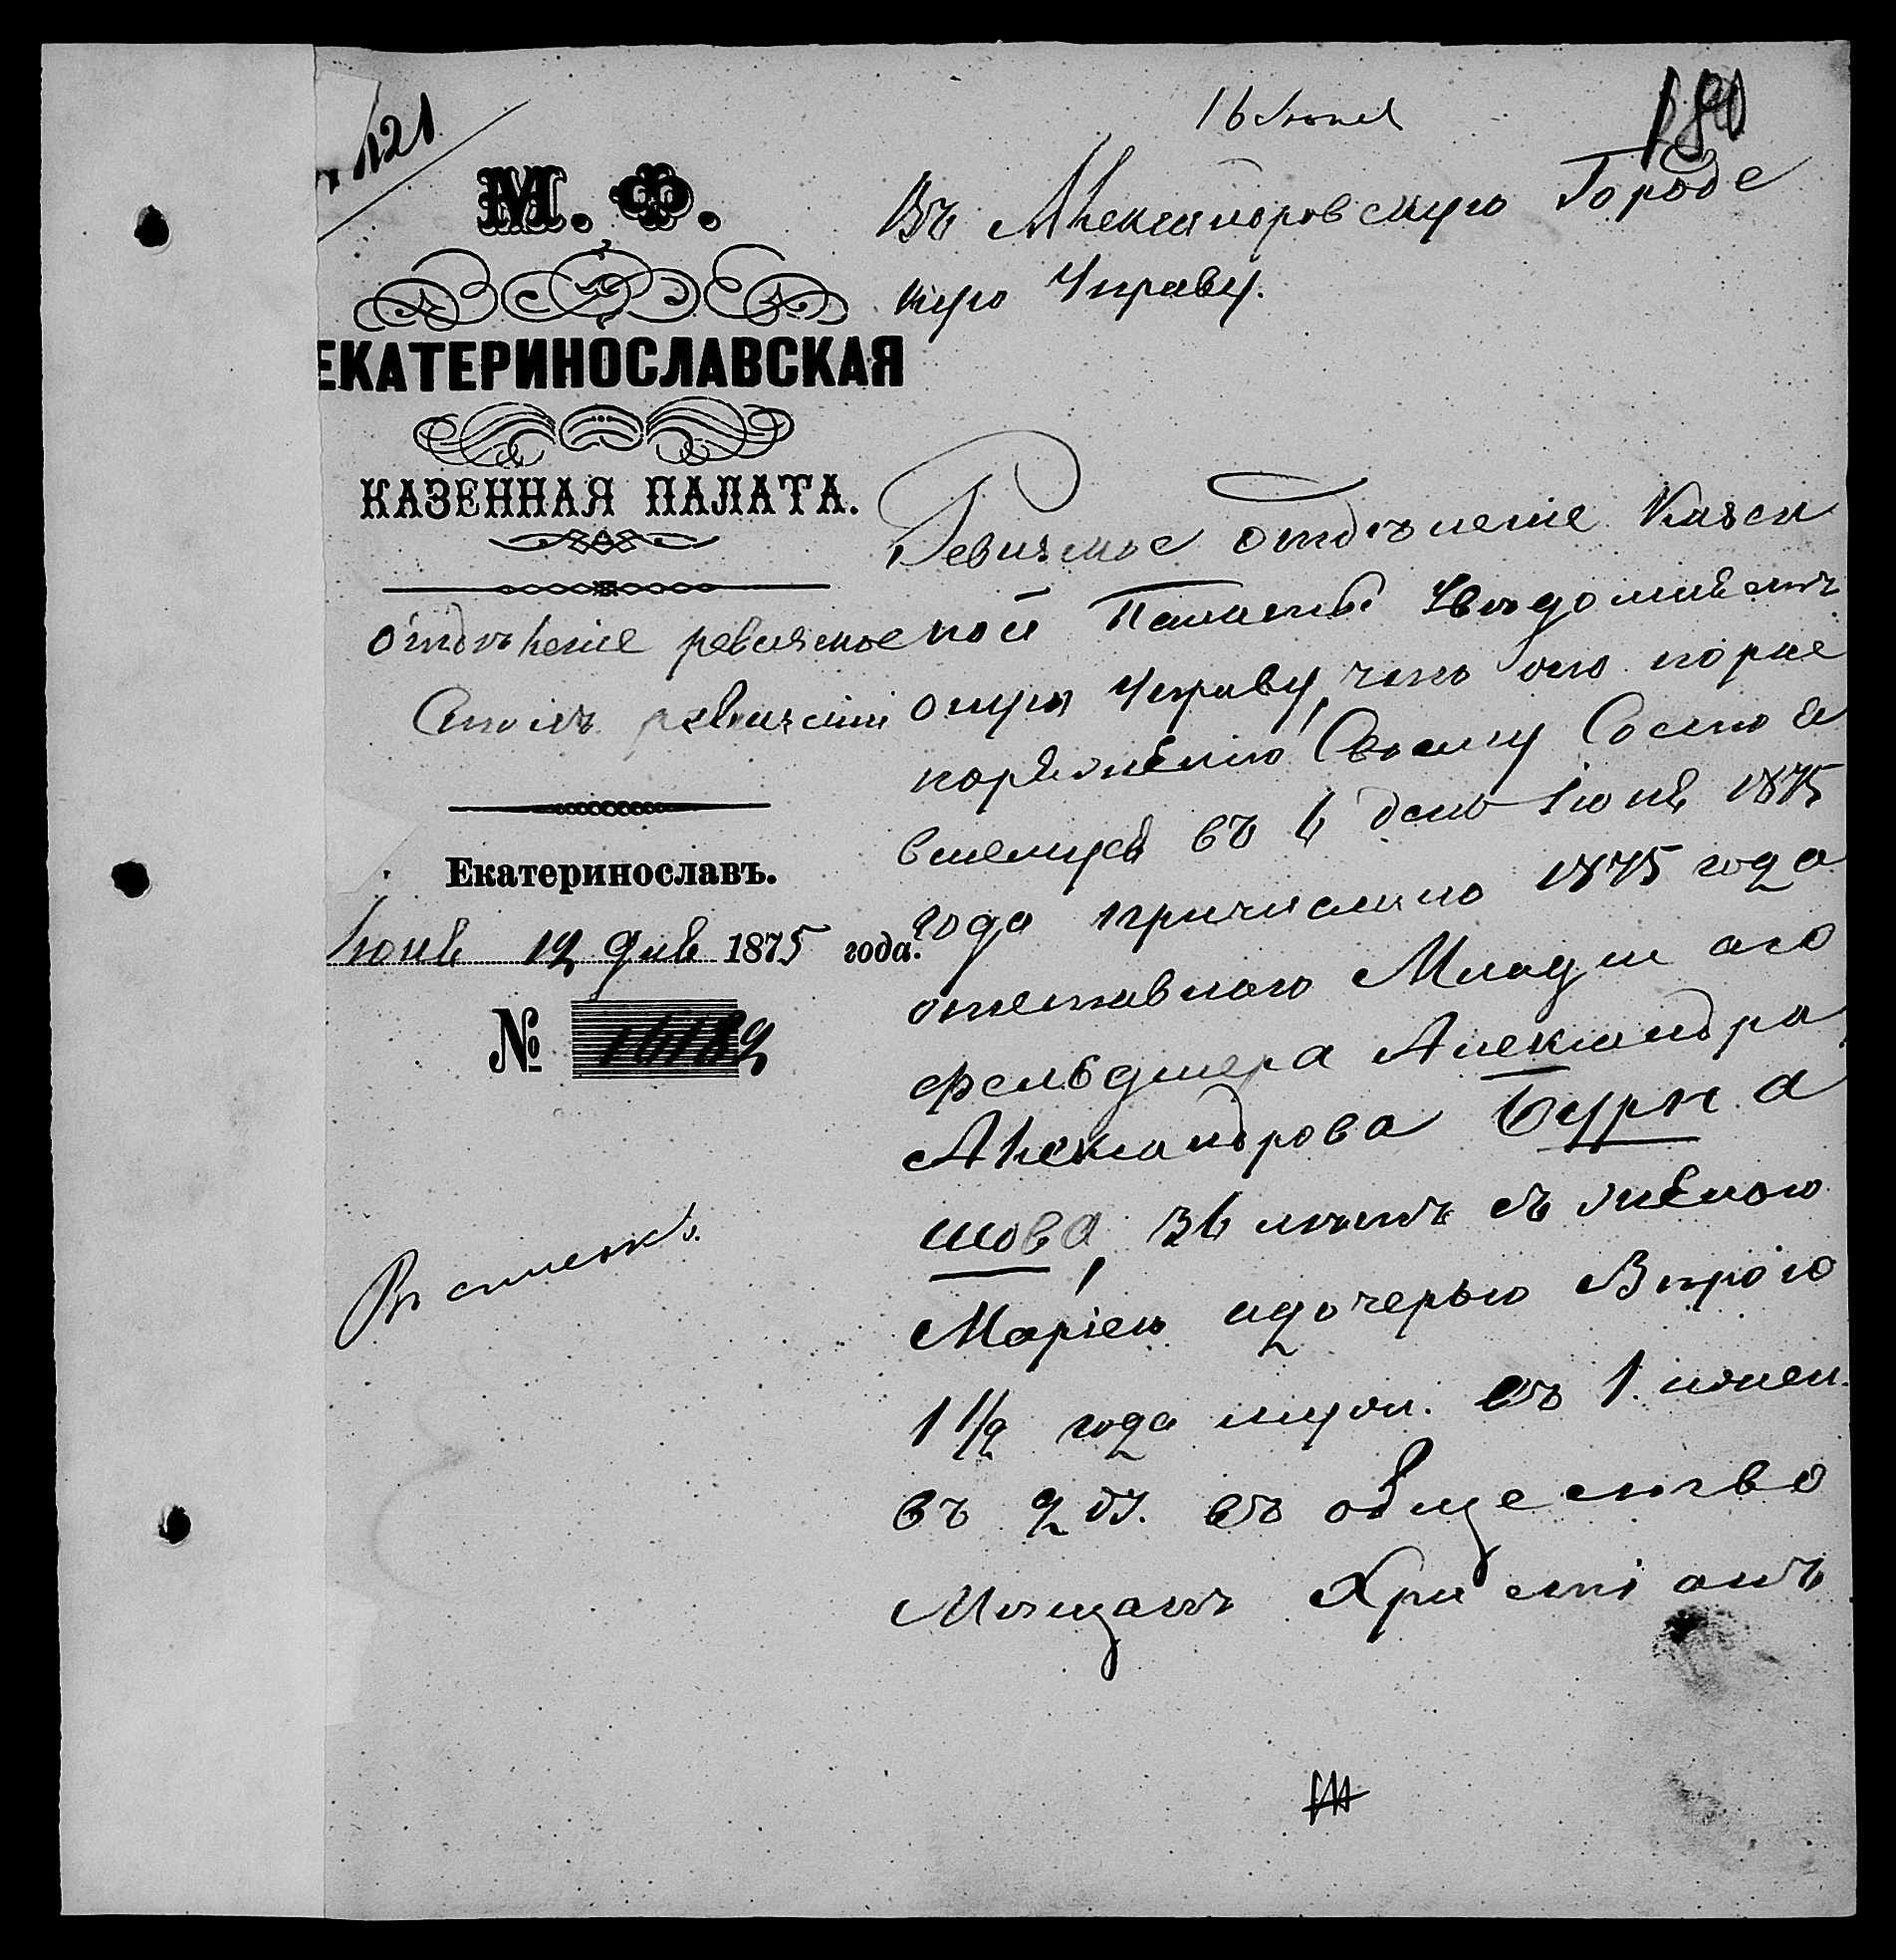 121
16 Июня
180
М. Ф.
ЕКАТЕРИНОСЛАВСКАЯ
КАЗЕННАЯ ПАЛАТА.
Отдѣленіе ревизское
Столъ ревизскій
Екатеринославъ.
Іюня 12 дня 1875 года.
№ 16182
Въ списокъ.
Въ Александровскую Городс
кую Управу.
Ревизское отдѣленіе Казен
ной Палаты Увѣдомляетъ
оную Управу, что по
Своему Состоя
вшемуся въ 4 день Іюня 1875
года причислило 1875 года
отставного Младшаго
фельдшера Александра
Александрова Бурна
шова, 34 лѣтъ съ женою
Маріею и дочерью Вѣрою
1 1/2 года муж. съ 1. полов.
въ 2 въ общество
Мѣщанъ Христіанъ